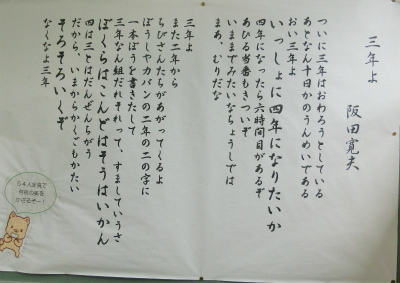 三年よ
阪田寛夫
ついに三年はおわろうとしている
あとなん十日かのうんめいである
おい三年よ
いっしょに四年になりたいか
四年になったら六時間目があるぞ
あひる当番もきついぞ
いままでみたいなちょうしでは
まあ、むりだな
三年よ
また二年から
ちびさんたちがあがってくるよ
ぼうしやカバンの二年の二の字に
一本ぼうを書きたして
三年なん組だれそれって、すましていうさ
ぼくらはこんどはそうはいかん
四は三とはだんぜんちがう
だから、いまからかくごもかたい
そろそろいくぞ
なくなよ三年
５４人全員で